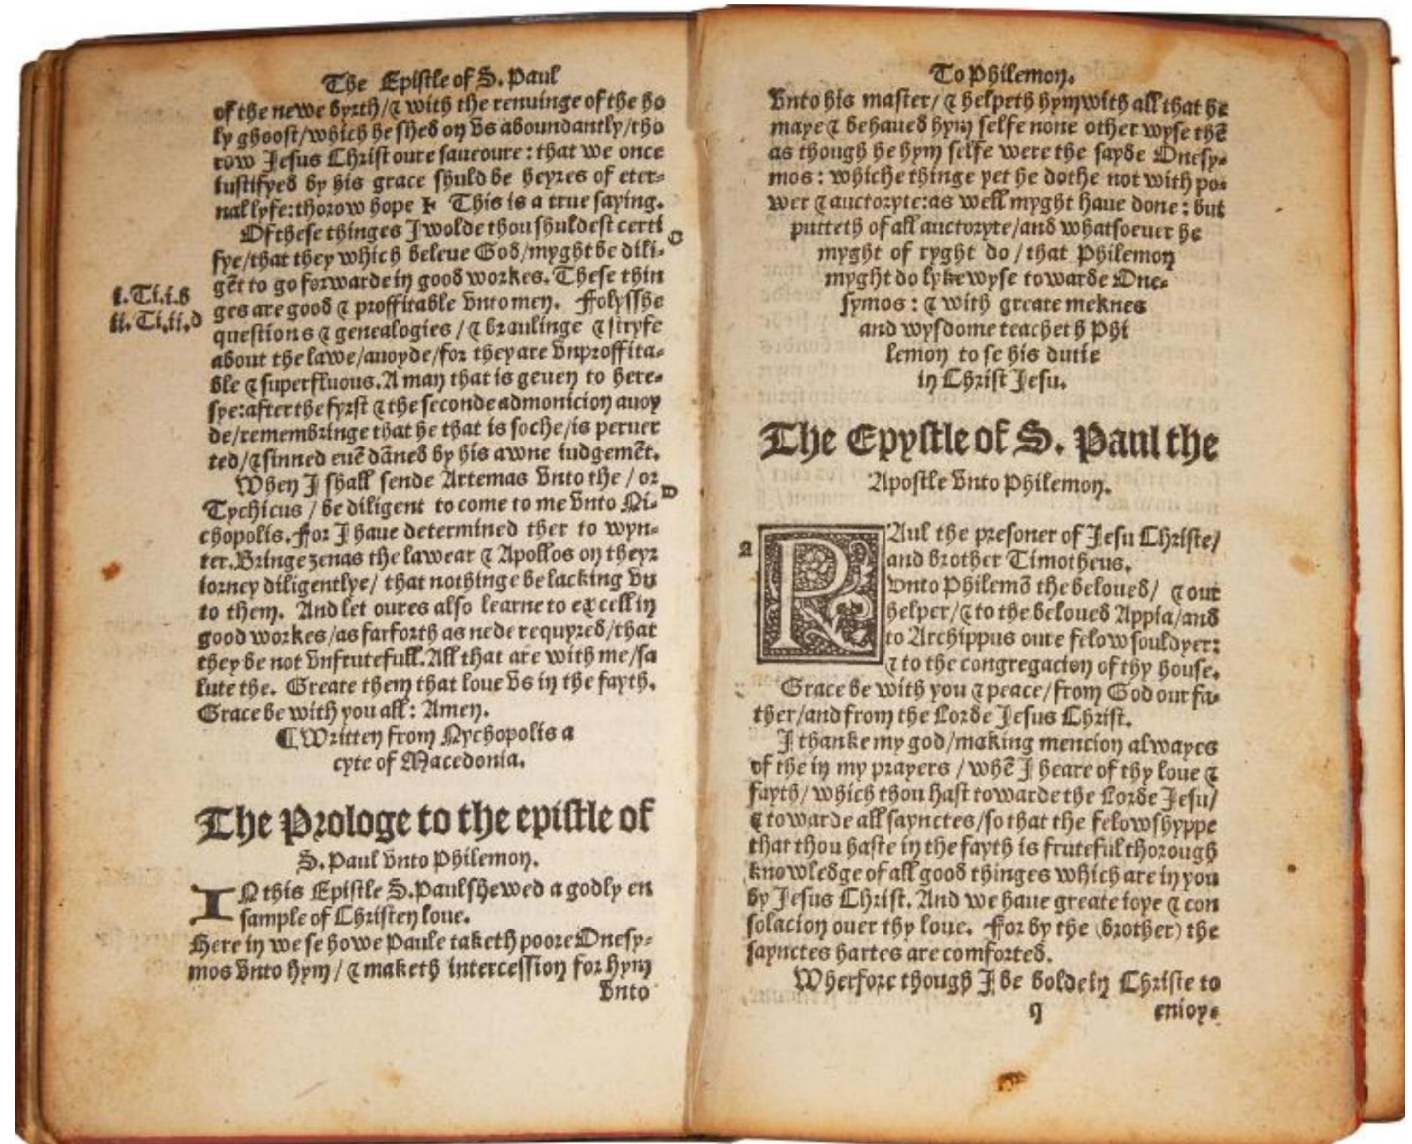 The Epistle of S. Paul
of the newe byrth/ & with the renuinge of the ho
ly ghoost/ which he shed on vs aboundantly/ tho
row Jesus Christ oure saueoure: that we once
iustifyed by his grace shuld be heyres of eter-
nal lyfe: thorow hope This is a true saying.
Of these thinges I wolde thou shuldest certi
C
fye/ that they which beleue God/ myght be dili-
gēt to go forwarde in good workes. These thin
i. Ti. i. b
ges are good & proffitable vnto men. Folysshe
ii. Ti. ii. d
questions & genealogies/ & braulinge & stryfe
about the lawe/ auoyde/ for they are vnproffita-
ble & superfluous. A man that is geuen to here-
sye: after the fyrst & the seconde admonicion auoy
de/ remembringe that he that is soche/ is peruer
ted/ & sinned euē dāned by his awne iudgemēt.
When I shall sende Artemas vnto the/ or
D
Tychicus/ be diligent to come to me vnto Ni-
chopolis. For I haue determined ther to wyn-
ter. Bringe zenas the lawear & Apollos on theyr
iorney diligentlye/ that nothinge be lacking vn
to them. And let oures also learne to excell in
good workes/ as farforth as nede requyred/ that
they be not vnfrutefull. All that are with me/ sa
lute the. Greate them that loue vs in the fayth.
Grace be with you all: Amen.
¶ Written from Nychopolis a
cyte of Macedonia.
The Prologe to the epistle of
S. Paul vnto Philemon.
IN this Epistle S. Paul shewed a godly en
sample of Christen loue.
Here in we se howe Paule taketh poore Onesy-
mos vnto hym/ & maketh intercession for hym
vnto
To Philemon.
vnto his master/ & helpeth hym with all that he
maye & behaued hym selfe none other wyse thē
as though he hym selfe were the sayde Onesy-
mos: whiche thinge yet he dothe not with po-
wer & auctoryte: as well myght haue done: but
putteth of all auctoryte/ and whatsoeuer he
myght of ryght do/ that Philemon
myght do lykewyse towarde One-
symos: & with greate meknes
and wysdome teacheth Phi
lemon to se his dutie
in Christ Jesu.
The Epystle of S. Paul the
Apostle vnto Philemon.
a
RAul the presoner of Jesu Christe/
and brother Timotheus.
vnto Philemō the beloued/ & our
helper/ & to the beloued Appia/ and
to Archippus oure felow souldyer:
& to the congregacion of thy house.
Grace be with you & peace/ from God our fa-
ther/ and from the Lorde Jesus Christ.
I thanke my god/ making mencion alwayes
of the in my prayers/ whē I heare of thy loue &
fayth/ which thou hast towarde the Lorde Jesu/
& towarde all saynctes/ so that the felowshyppe
that thou haste in the fayth is fruteful thorough
knowledge of all good thinges which are in you
by Jesus Christ. And we haue greate ioye & con
solacion ouer thy loue. For by the (brother) the
saynctes hartes are comforted.
Wherfore though I be bolde in Christe to
enioy-